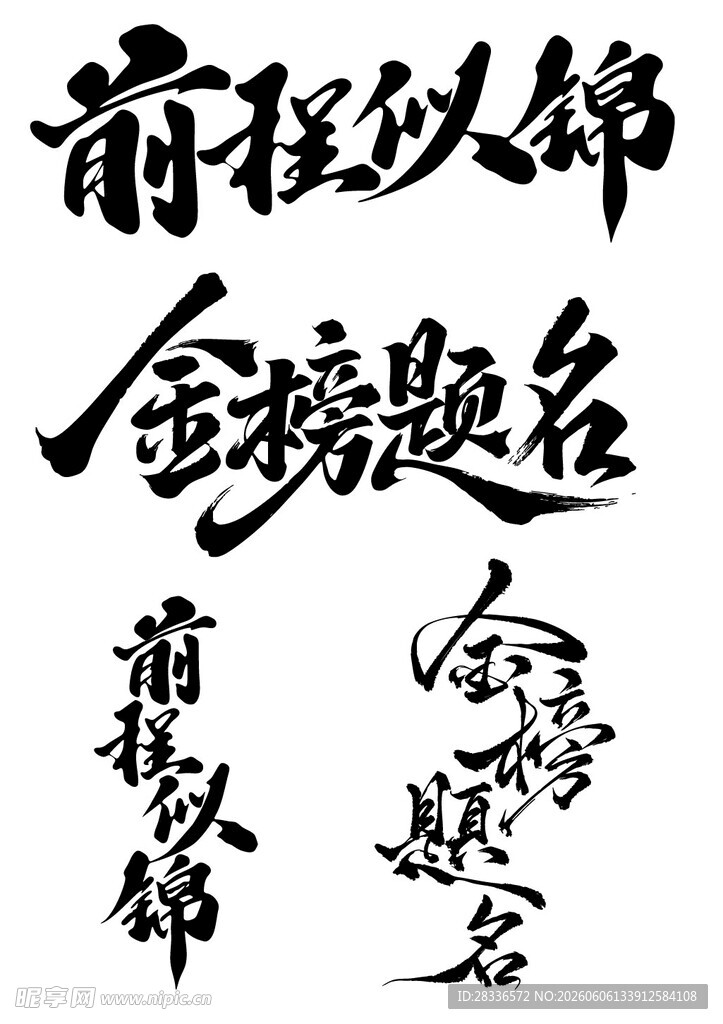 前程似锦
金榜题名
前程似锦
金榜題名
昵享网 www.nipic.cn
ID:28336572 NO:20260606133912584108